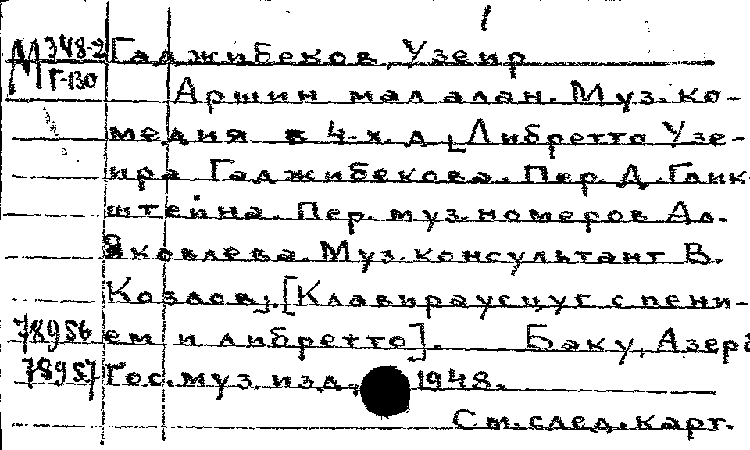 1
М 348-2 Гаджибеков, Узеир
Г-130
Аршин мал алан. Муз. ко-
медия в 4-х. д. Либретто Узе-
ира Гаджибекова. Пер. Д. Глик-
штейна. Пер. муз. номеров Ал.
Яковлева. Муз. консультант В.
Козлов]. [Клавираусцуг с пени-
78956 ем и либретто]. Баку, Азерб
78957 Гос. муз. изд., 1948.
См. след. карт.